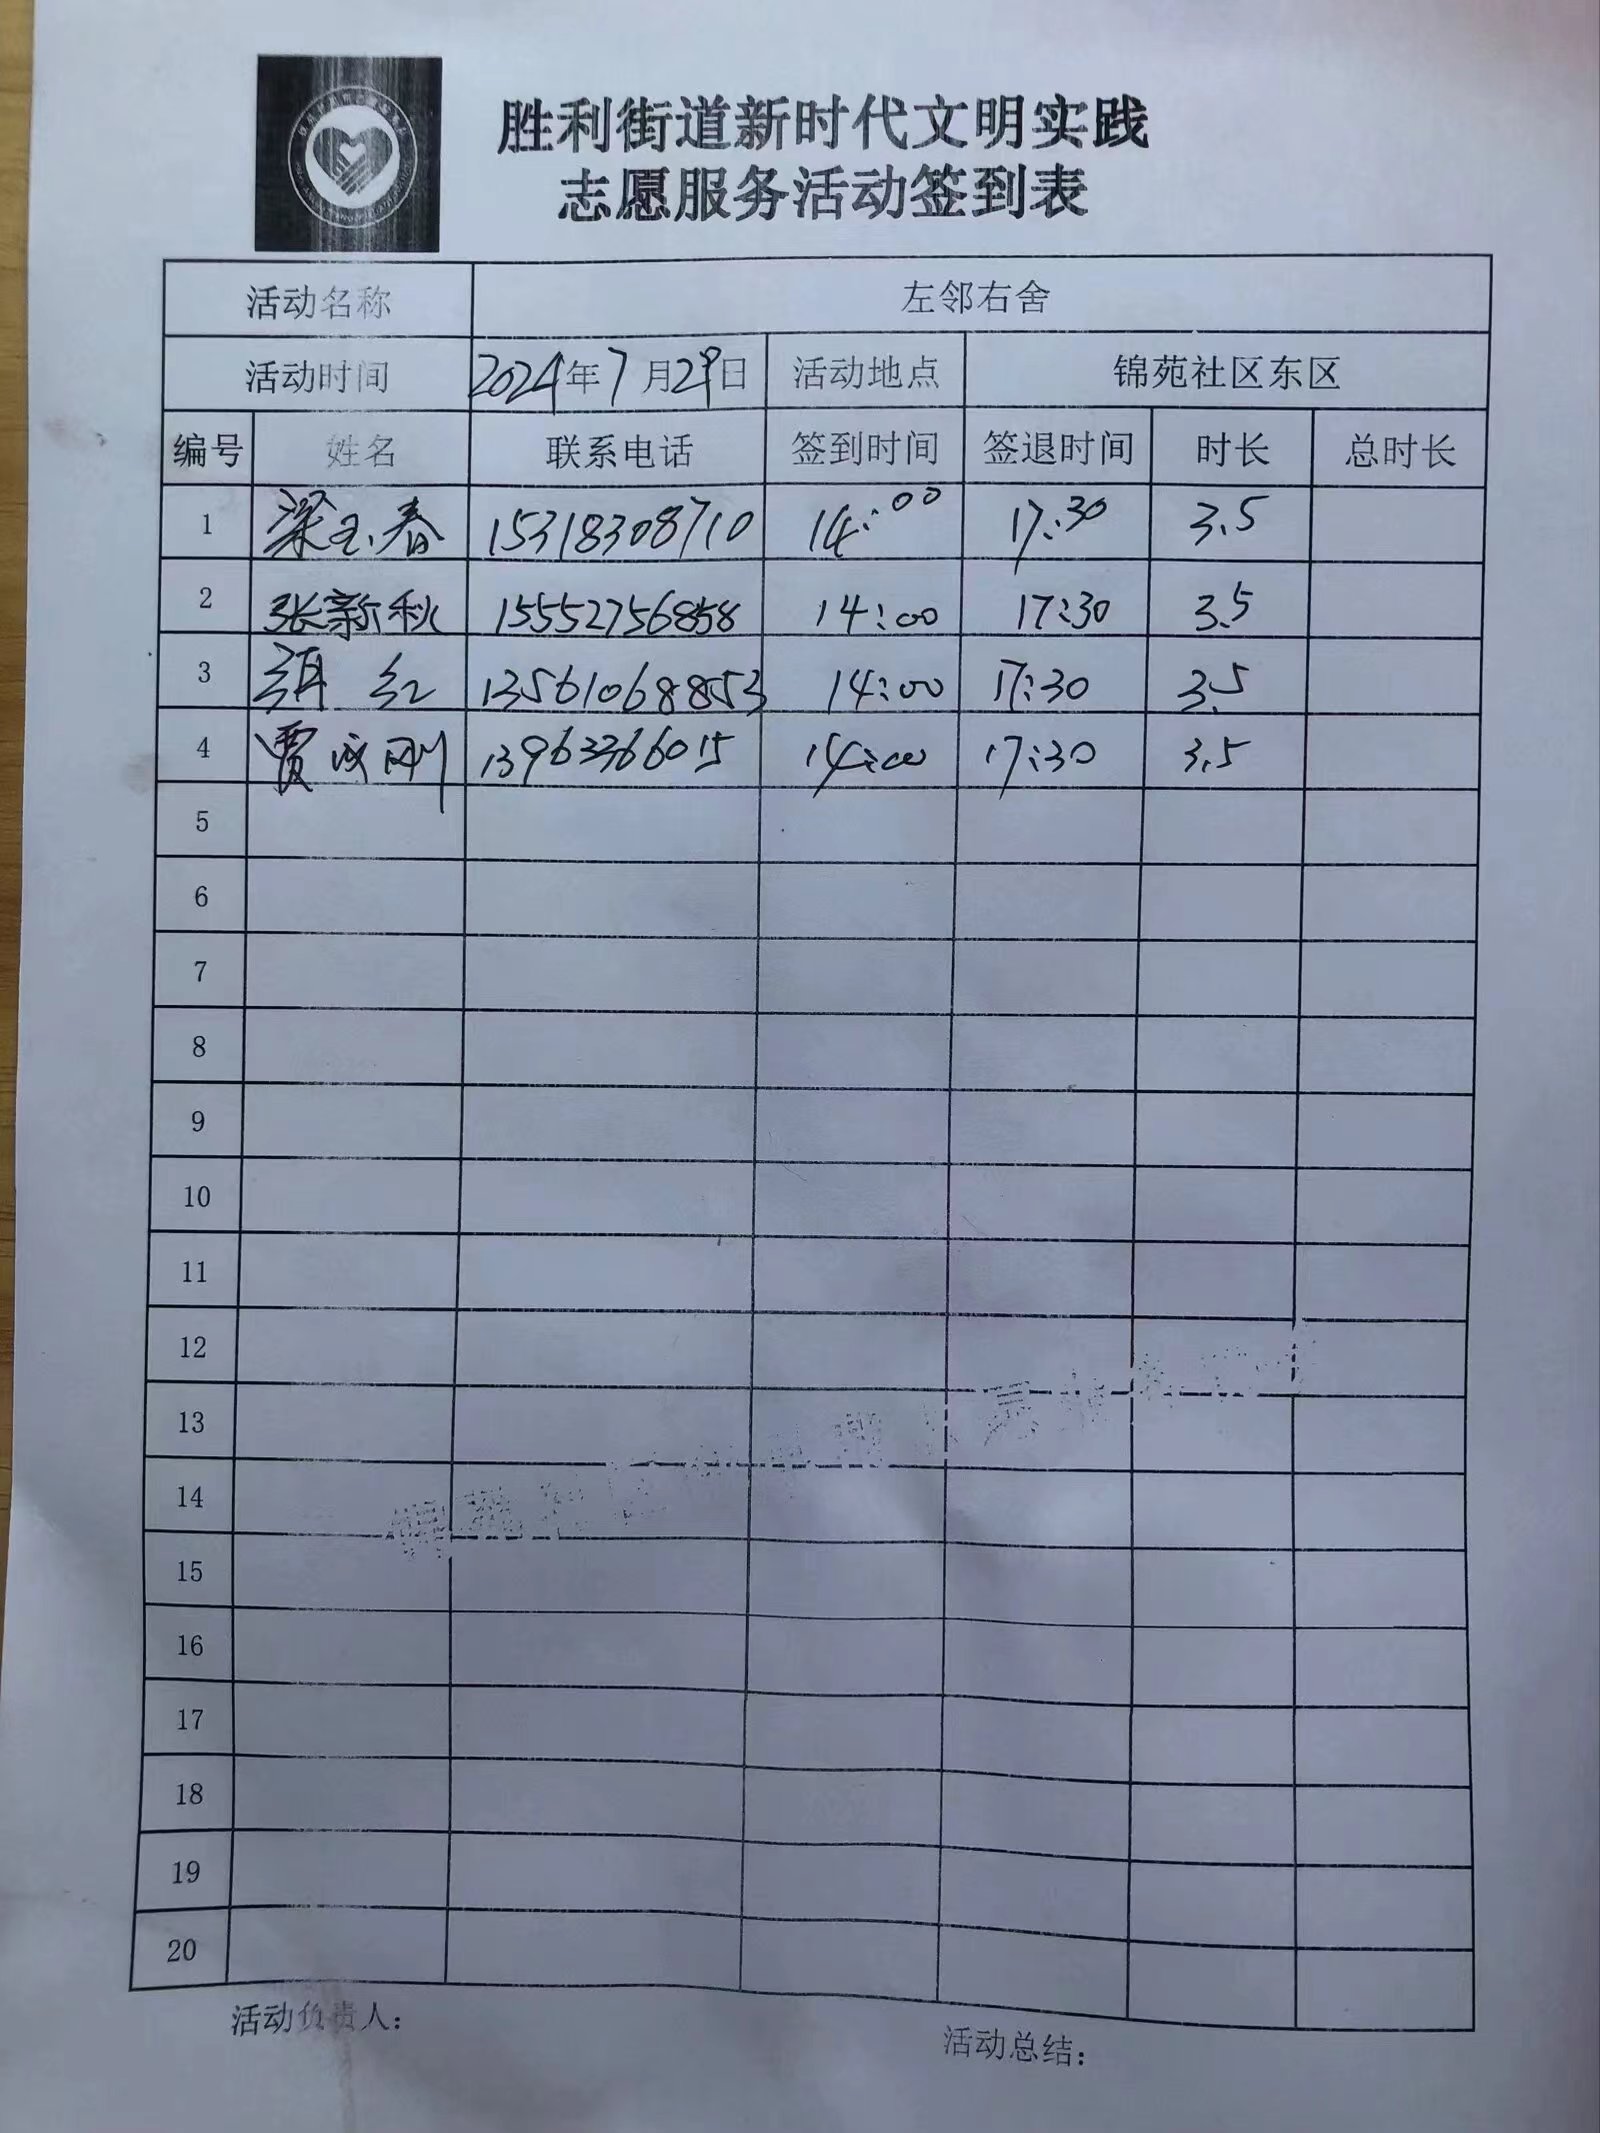 胜利街道新时代文明实践
志愿服务活动签到表
活动名称 左邻右舍
活动时间 2024年7月29日 活动地点 锦苑社区东区
编号 姓名 联系电话 签到时间 签退时间 时长 总时长
1 梁玉春 15318308710 14:00 17:30 3.5
2 张新秋 15552756858 14:00 17:30 3.5
3 红 13561068853 14:00 17:30 3.5
4 贾成刚 13963366015 14:00 17:30 3.5
5
6
7
8
9
10
11
12
13
14
15
16
17
18
19
20
活动负责人：
活动总结：